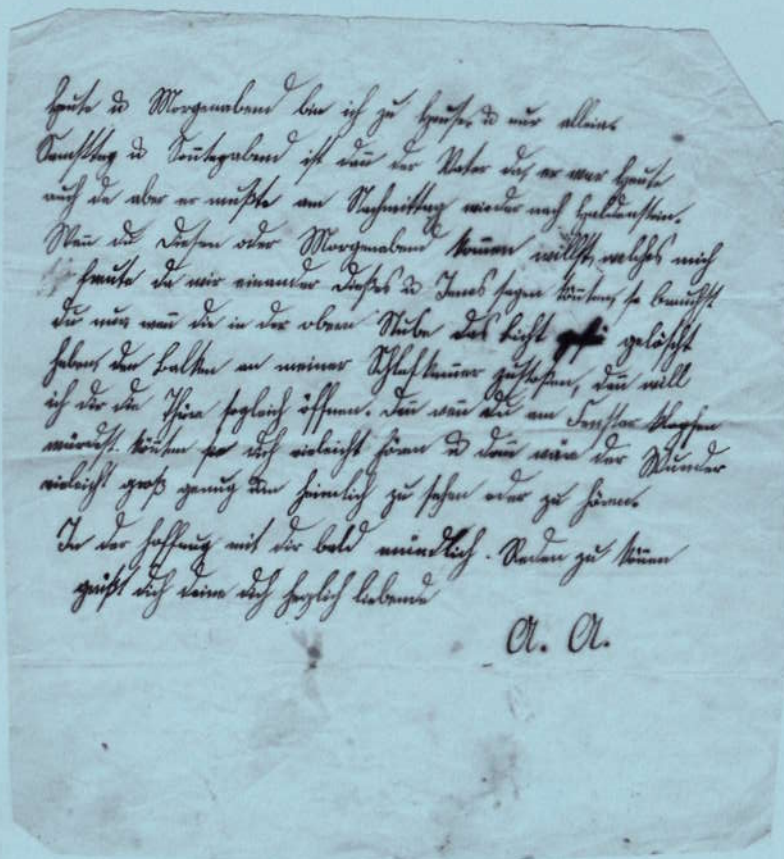 Heute u Morgenabend bin ich zu Hause, u nur allein.
Samsttag u Sontagabend ist dan̄ der Vater da, er war heute
auch da aber er mußte am Nachmittag wieder nach Haldenstein.
Wen̄ du diesen oder Morgenabend kom̄en willst, welches mich
freute da wir einander dieses u Jenes sagen kön̄ten, so brauchst
du nur wen̄ die in der obern Stube das Licht gelöscht
haben, den Balken an meiner Schlafkam̄er zustoßen, dan̄ will
ich dir die Thüre sogleich öffnen. Den̄ wen̄ du am Fenster klopfen
würdest. kön̄ten sie dich vieleicht hören u dan̄ wär der Wunder
vieleicht groß genug um heimlich zu sehen oder zu hören.
In der Hoffnug mit dir bald mündlich. Reden zu kön̄en
grüßt dich deine dich herzlich liebende
A. A.